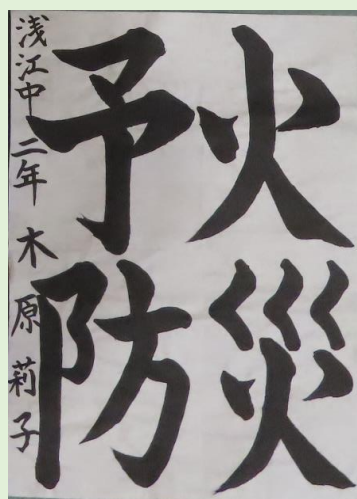 火災
予防
浅江中 二年 木原莉子